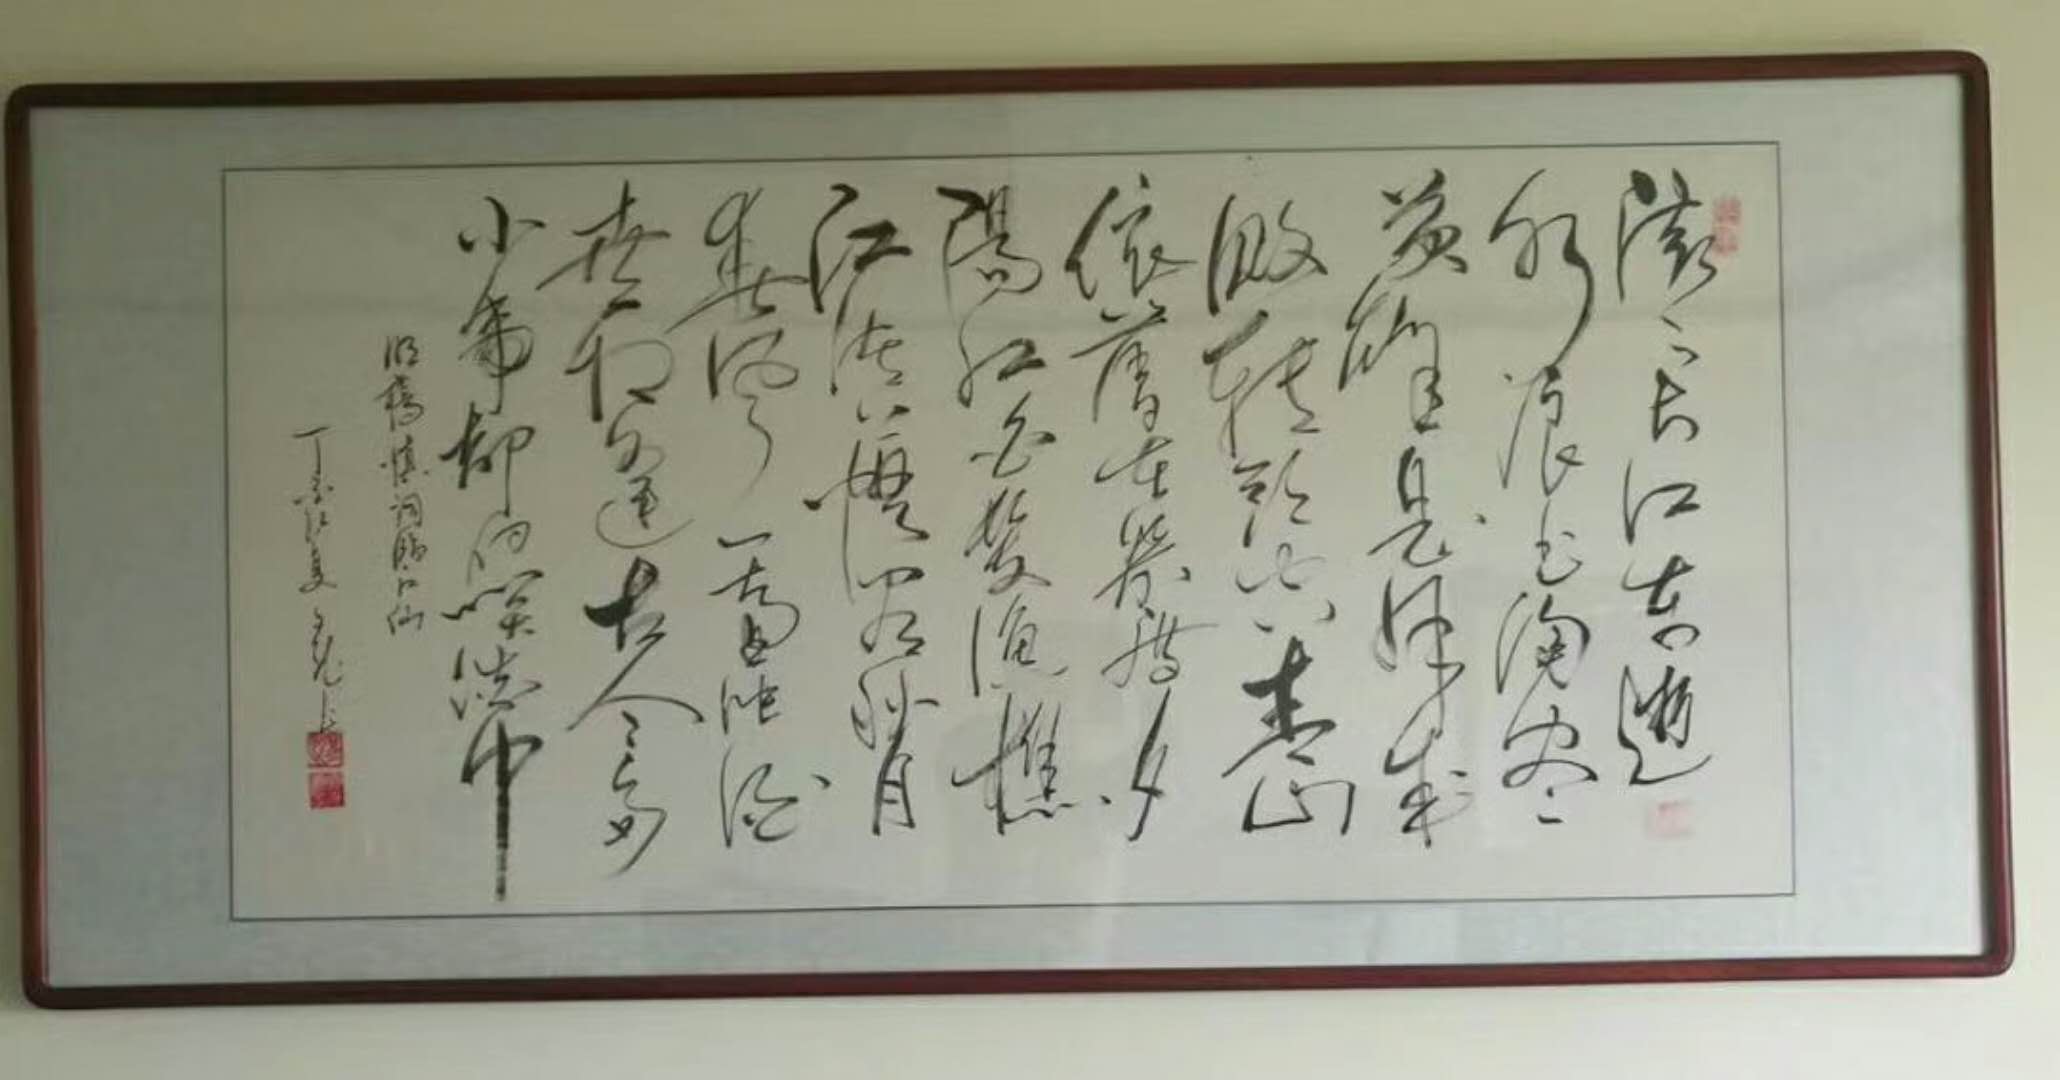 滚滚长江东逝
水浪花淘尽
英雄是非成
败转头空青山
依舊在幾度夕
陽红白髮渔樵
江渚上惯看秋月
春风一壶浊酒
喜相逢古今多
少事都付笑谈中
明楊慎词临江仙
丁 夏